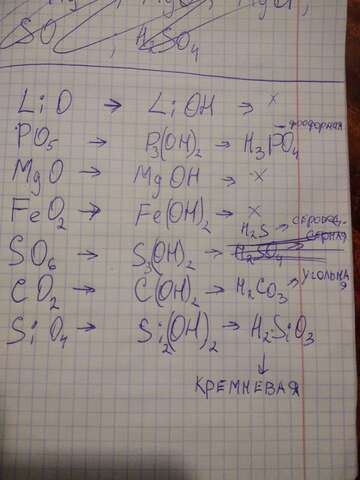 SO , H₂SO₄
LiO → LiOH → x
PO₅ → P₃(OH)₂ → H₃PO₄ - фосфорная
MgO → MgOH → x
FeO₂ → Fe(OH)₂ → x
H₂S → серовод.
SO₆ → S₃(OH)₂ → H₂SO₄ → серная
CO₂ → C(OH)₂ → H₂CO₃ → угольная
SiO₄ → Si₂(OH)₂ → H₂SiO₃
↓
КРЕМНЕВАЯ